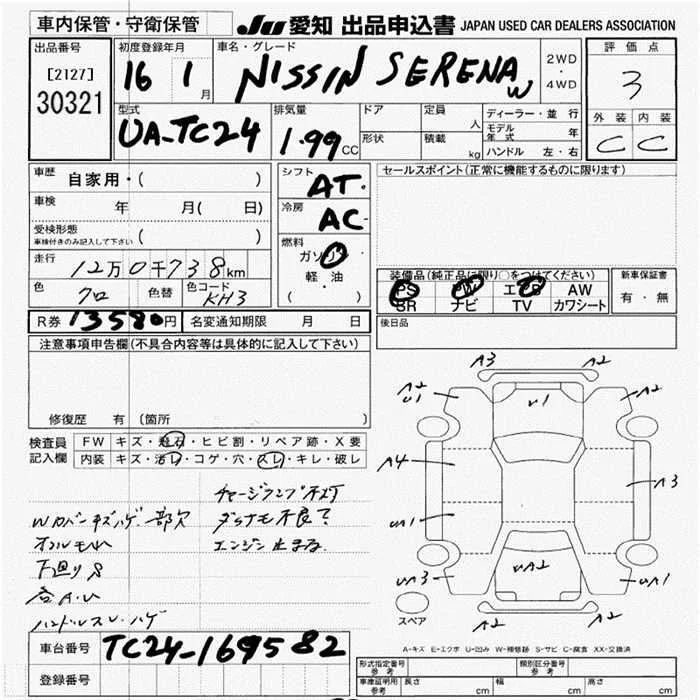 車内保管・守衛保管
JU 愛知 出品申込書 JAPAN USED CAR DEALERS ASSOCIATION
出品番号
[2127]
30321
初度登録年月
16 1月
車名・グレード
NISSIN SERENA W
2WD
・
4WD
評価点
3
外装 内装
C C
型式
UA-TC24
排気量
1.99CC
ドア
形状
定員 人
積載 kg
ディーラー・並行
モデル年式 年
ハンドル 左・右
車歴 自家用・( )
車検 年 月( 日)
受検形態 ( )
車検付きのみ記入して下さい
走行 12万0千738km
色 クロ 色替 色コード KH3
シフト AT
冷房 AC
燃料
ガソリン
軽・油
( )
セールスポイント(正常に機能するものに限ります)
装備品(純正品に限り○をつけてください)
PS PW エアB AW
SR ナビ TV カワシート
新車保証書
有・無
R券 13580円 名変通知期限 月 日
後日品
注意事項申告欄(不具合内容等は具体的に記入して下さい)
修復歴 有 (箇所 )
検査員記入欄
FW キズ・飛石・ヒビ割・リペア跡・X要
内装 キズ・汚レ・コゲ・穴・スレ・キレ・破レ
チャージランプ不灯
Wカバーキズハゲ 部欠
ダイナモ不良?
オイルモレ
エンジン止まる
下廻りS
ハンドルスレ・ハゲ
A3 A2
A2
U1
U1
A2
A4
A3
UA1
UA3
UA2
UA1
スペア
A2 A2
A-キズ E-エクボ U-凹み W-補修跡 S-サビ C-腐食 XX-交換済
車台番号 TC24-169582
登録番号
形式指定番号 参考
類別区分番号 参考
車庫証明用 参考 長さ cm 幅 cm 高さ cm